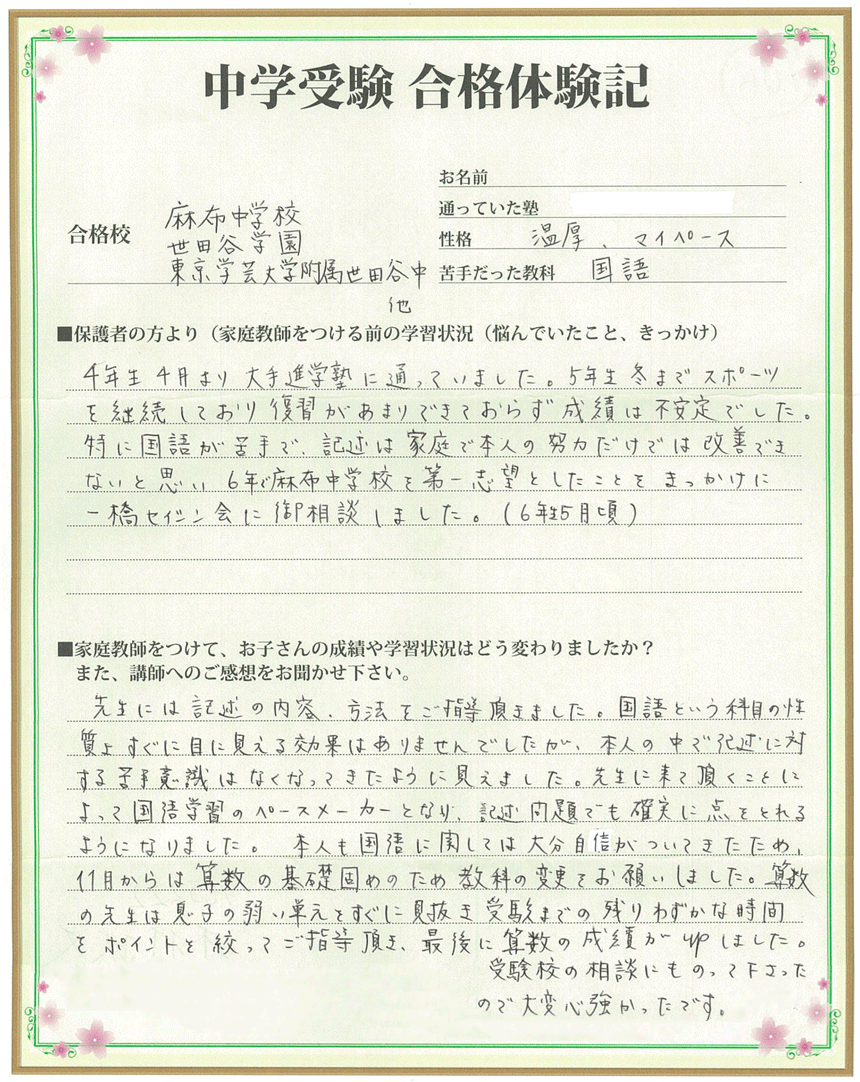 中学受験 合格体験記
お名前
通っていた塾
性格 温厚、マイペース
苦手だった教科 国語
合格校 麻布中学校
世田谷学園
東京学芸大学附属世田谷中
他
■保護者の方より（家庭教師をつける前の学習状況（悩んでいたこと、きっかけ）
4年生4月より大手進学塾に通っていました。5年生冬までスポーツ
を継続しており復習があまりできておらず成績は不安定でした。
特に国語が苦手で、記述は家庭で本人の努力だけでは改善でき
ないと思い6年で麻布中学校を第一志望としたことをきっかけに
一橋セイシン会に御相談しました。(6年生5月頃)
■家庭教師をつけて、お子さんの成績や学習状況はどう変わりましたか？
また、講師へのご感想をお聞かせ下さい。
先生には記述の内容、方法をご指導頂きました。国語という科目の性
質上すぐに目に見える効果はありませんでしたが、本人の中で記述に対
する苦手意識はなくなってきたように見えました。先生に来て頂くことに
よって国語学習のペースメーカーとなり、記述問題でも確実に点をとれる
ようになりました。本人も国語に関しては大分自信がついてきたため、
11月からは算数の基礎固めのため教科の変更をお願いしました。算数
の先生は息子の弱い単元をすぐに見抜き受験までの残りわずかな時間
をポイントを絞ってご指導頂き、最後に算数の成績がupしました。
受験校の相談にものって下さった
ので大変心強かったです。